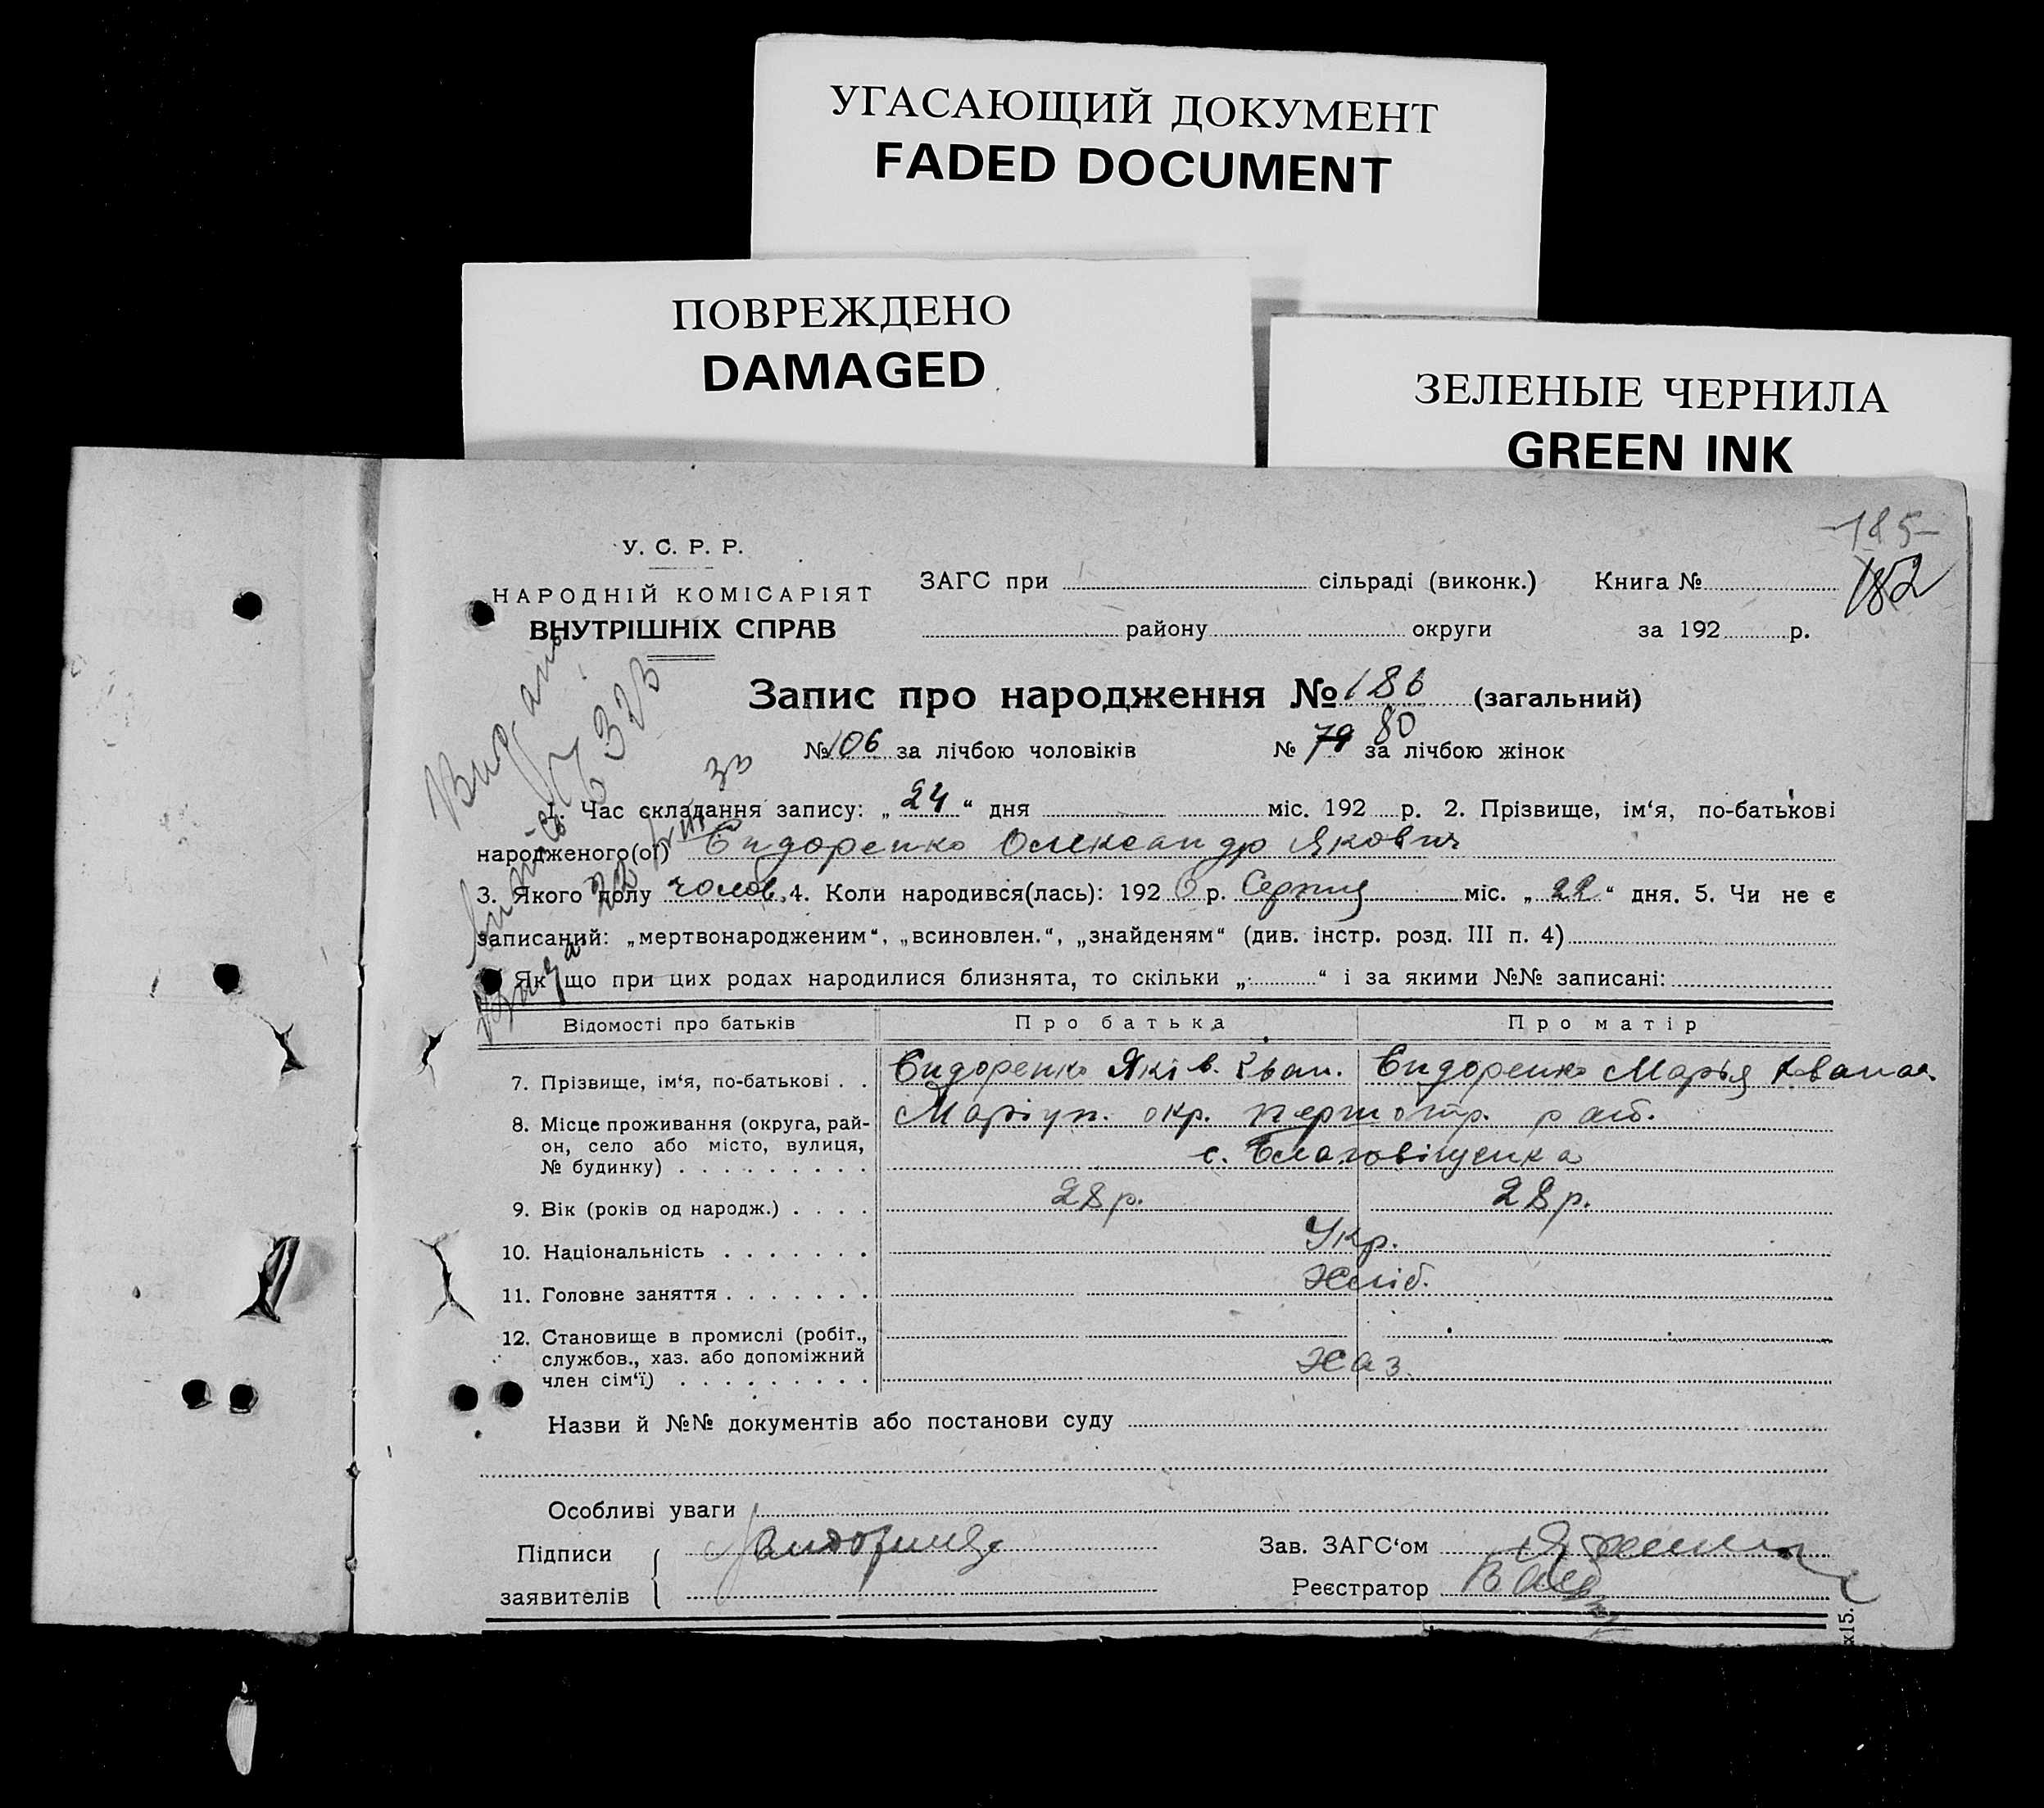 УГАСАЮЩИЙ ДОКУМЕНТ
FADED DOCUMENT
ПОВРЕЖДЕНО
DAMAGED
ЗЕЛЕНЫЕ ЧЕРНИЛА
GREEN INK
-185-
182
У. С. Р. Р.
НАРОДНІЙ КОМІСАРІЯТ
ВНУТРІШНІХ СПРАВ
ЗАГС при сільраді (виконк.) Книга №
району округи за 192 р.
Запис про народження № 186 (загальний)
№ 106 за лічбою чоловіків № 79 80 за лічбою жінок
1. Час складання запису: „ 24 “ дня міс. 192 р. 2. Прізвище, ім‘я, по-батькові
народженого(ої) Сидоренко Олександр Якович
3. Якого полу чолов. 4. Коли народився(лась): 192 р. Серпня міс. „ 22 “ дня. 5. Чи не є
записаний: „мертвонародженим“, „всиновлен.“, „знайденям“ (див. інстр. розд. III п. 4)
Як що при цих родах народилися близнята, то скільки „ “ і за якими №№ записані:
Відомості про батьків Про батька Про матір
7. Прізвище, ім‘я, по-батькові . . Сидоренко Яків. Іван. Сидоренко Марья
8. Місце проживання (округа, рай-
он, село або місто, вулиця,
№ будинку) . . . . . . . . .
Маріуп. окр. першотр. рай.
с. Благовіщенка
9. Вік (років од народж.) . . . . 28 р. 28 р.
10. Національність . . . . . . . Укр.
11. Головне заняття . . . . . . . Хліб.
12. Становище в промислі (робіт.,
службов., хаз. або допоміжний
член сім‘ї) . . . . . . . . .
Хаз.
Назви й №№ документів або постанови суду
Особливі уваги
Підписи
заявителів
Зав. ЗАГС‘ом
Реєстратор
х15.